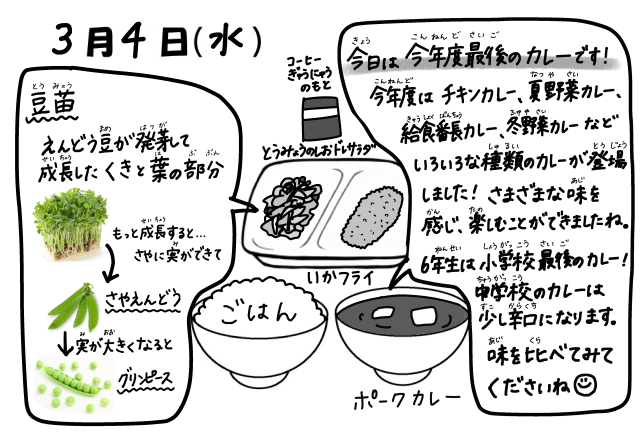 3月4日(水)
豆苗
えんどう豆が発芽して
成長したくきと葉の部分
もっと成長すると…
さやに実ができて
さやえんどう
実が大きくなると
グリンピース
コーヒー
ぎゅうにゅう
のもと
とうみょうのしおドレサラダ
いかフライ
ごはん
ポークカレー
今日は 今年度最後のカレーです!
今年度は チキンカレー、夏野菜カレー、
給食番長カレー、冬野菜カレー など
いろいろな種類のカレーが登場
しました! さまざまな味を
感じ、楽しむことができましたね。
6年生は小学校最後のカレー!
中学校のカレーは
少し辛口になります。
味を比べてみて
くださいね